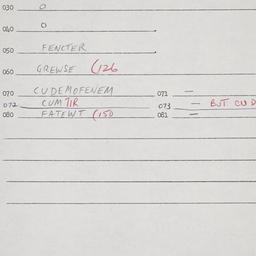 030 O
040 O
050 FENCTER
060 GREWSE (126
070 CUDEMOFENEM 071 —
072 CUM TIR 073 — BUT CUD
080 FATEWT (150 081 —